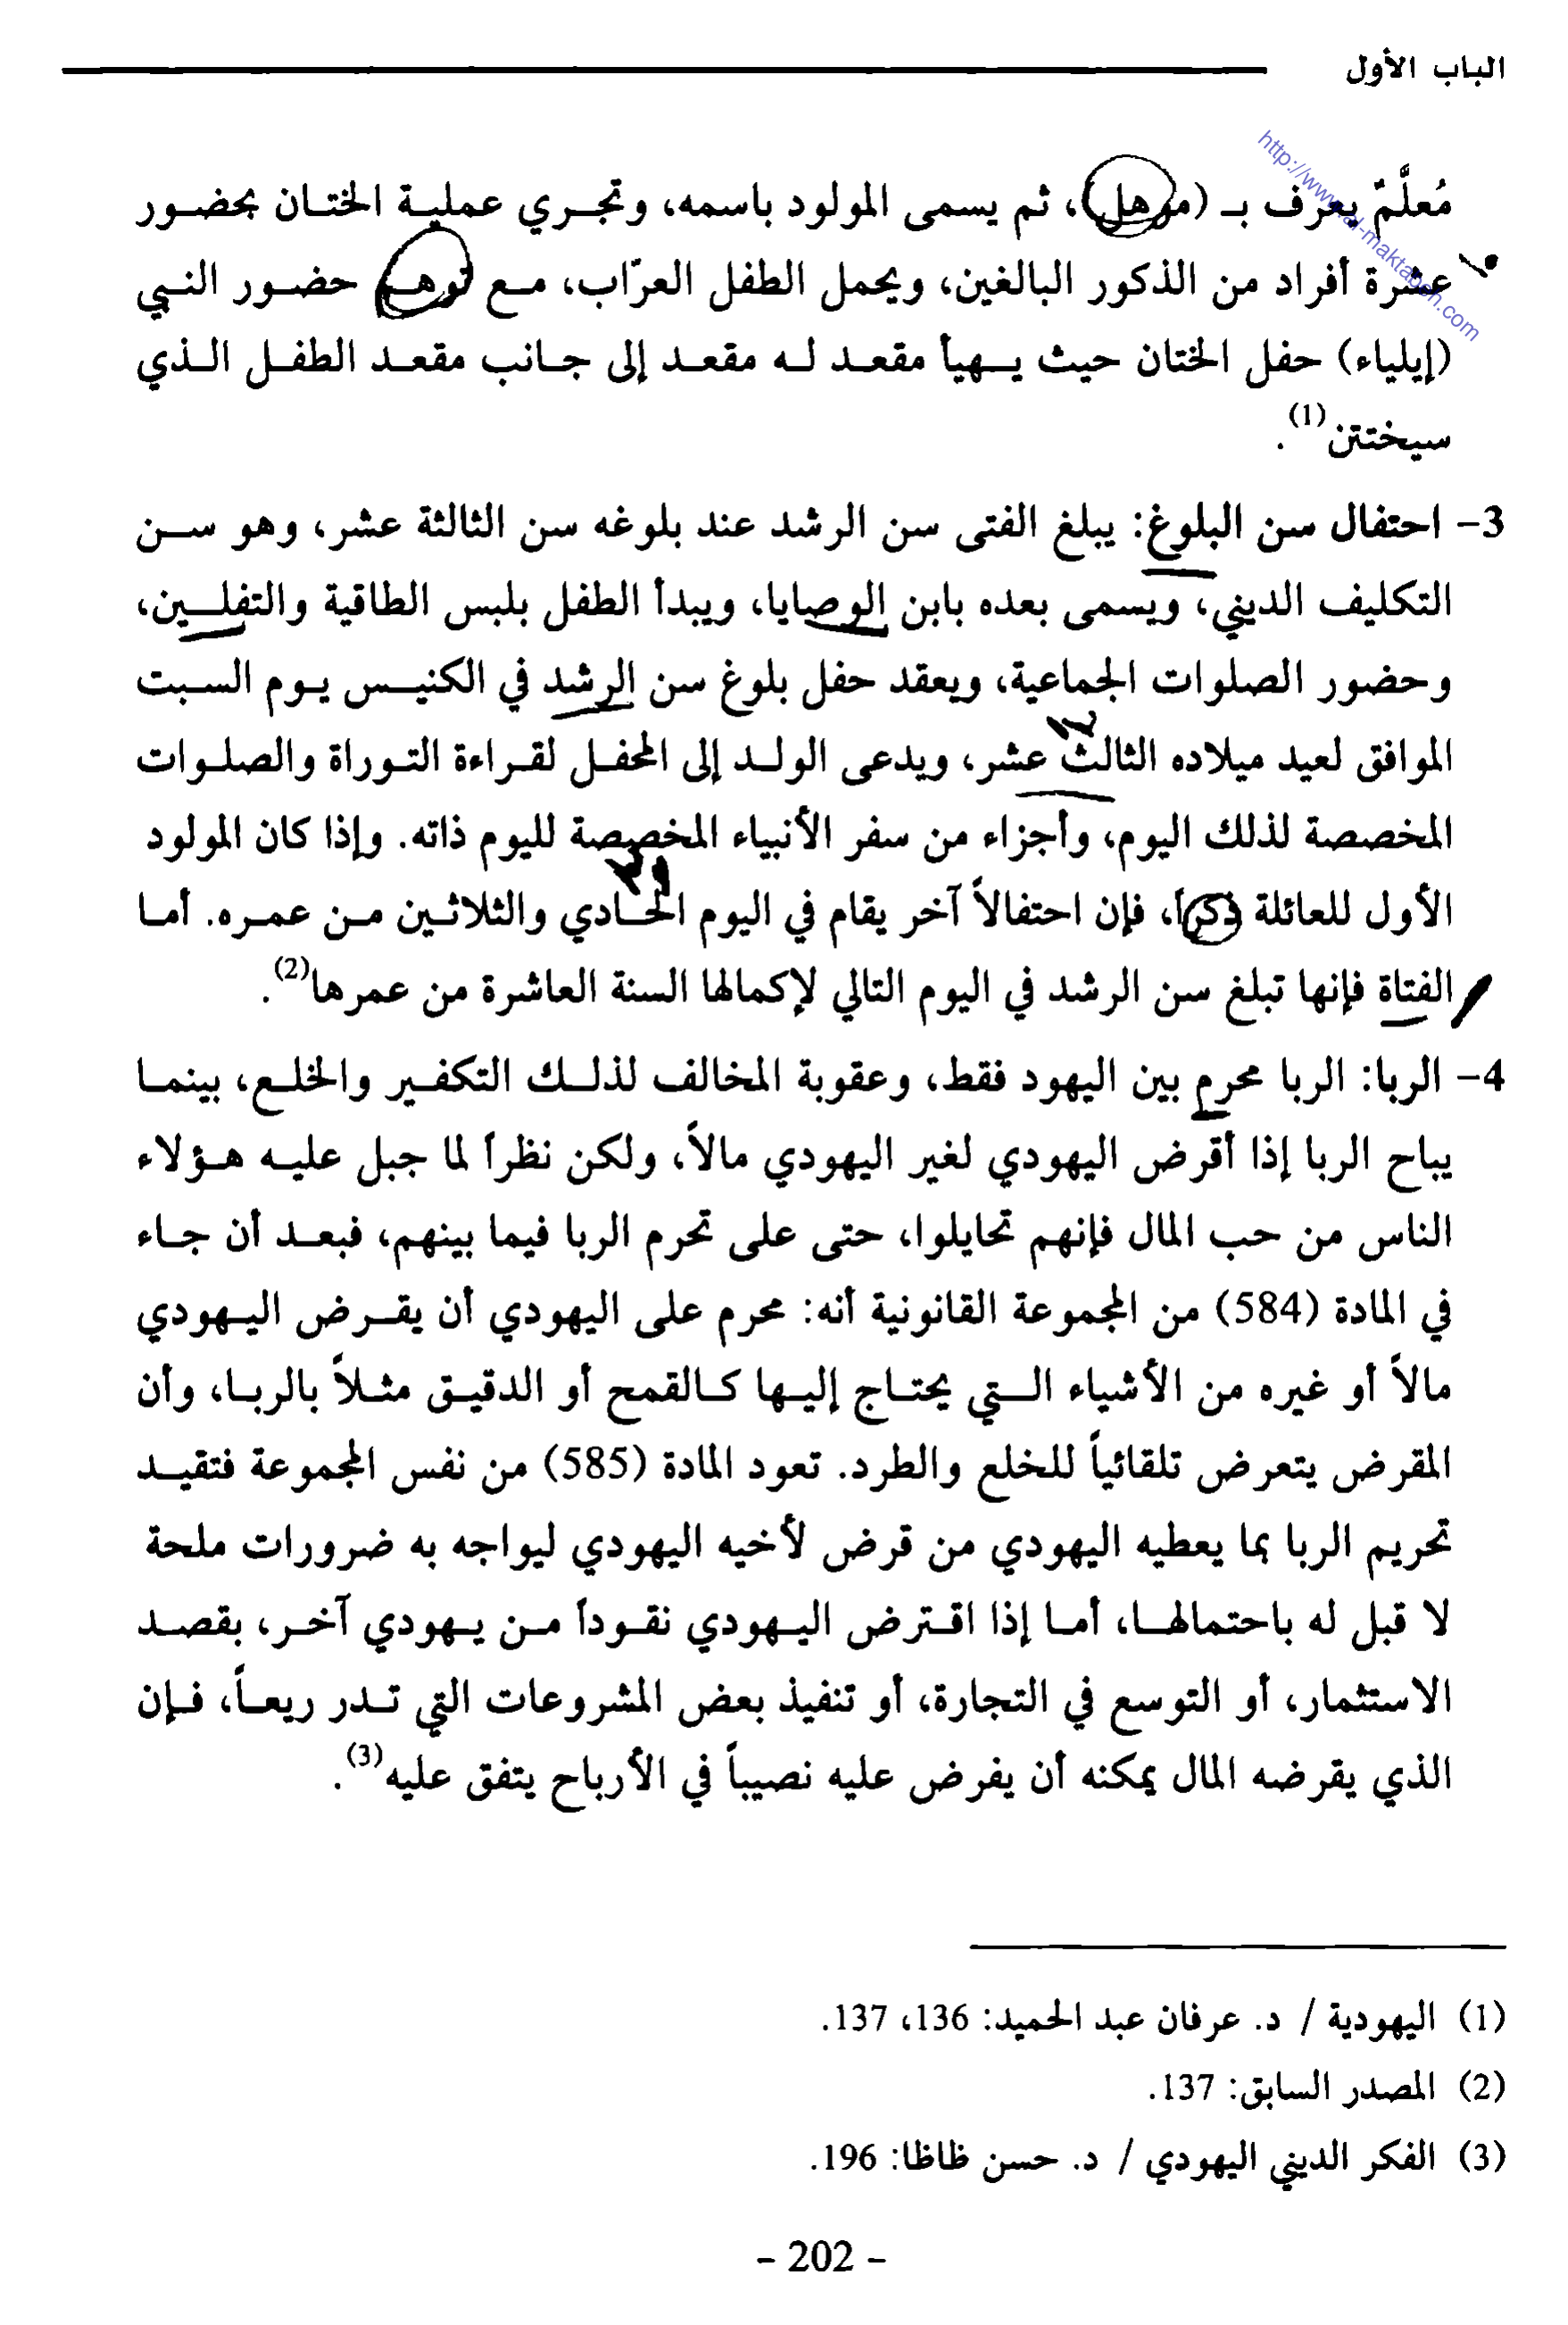 الباب الأول
http://www.al-maktabeh.com
مُعلَّمٌ يعرف بـ (موهل)، ثم يسمى المولود باسمه، وتجري عملية الختان بحضور
عشرة أفراد من الذكور البالغين، ويحمل الطفل العرّاب، مع توهم حضور النبي
(إيلياء) حفل الختان حيث يهيأ مقعد له مقعد إلى جانب مقعد الطفل الذي
سيختتن(1).
3- احتفال سن البلوغ: يبلغ الفتى سن الرشد عند بلوغه سن الثالثة عشر، وهو سن
التكليف الديني، ويسمى بعده بابن الوصايا، ويبدأ الطفل بلبس الطاقية والتفلين،
وحضور الصلوات الجماعية، ويعقد حفل بلوغ سن الرشد في الكنيس يوم السبت
الموافق لعيد ميلاده الثالث عشر، ويدعى الولد إلى المحفل لقراءة التوراة والصلوات
المخصصة لذلك اليوم، وأجزاء من سفر الأنبياء المخصصة لليوم ذاته. وإذا كان المولود
الأول للعائلة ذكراً، فإن احتفالاً آخر يقام في اليوم الحادي والثلاثين من عمره. أما
الفتاة فإنها تبلغ سن الرشد في اليوم التالي لإكمالها السنة العاشرة من عمرها(2).
4- الربا: الربا محرم بين اليهود فقط، وعقوبة المخالف لذلك التكفير والخلع، بينما
يباح الربا إذا أقرض اليهودي لغير اليهودي مالاً، ولكن نظراً لما جبل عليه هؤلاء
الناس من حب المال فإنهم تحايلوا، حتى على تحرم الربا فيما بينهم، فبعد أن جاء
في المادة (584) من المجموعة القانونية أنه: محرم على اليهودي أن يقرض اليهودي
مالاً أو غيره من الأشياء التي يحتاج إليها كالقمح أو الدقيق مثلاً بالربا، وأن
المقرض يتعرض تلقائياً للخلع والطرد. تعود المادة (585) من نفس المجموعة فتقيد
تحريم الربا بما يعطيه اليهودي من قرض لأخيه اليهودي ليواجه به ضرورات ملحة
لا قبل له باحتمالها، أما إذا اقترض اليهودي نقوداً من يهودي آخر، بقصد
الاستثمار، أو التوسع في التجارة، أو تنفيذ بعض المشروعات التي تدر ريعاً، فإن
الذي يقرضه المال يمكنه أن يفرض عليه نصيباً في الأرباح يتفق عليه(3).
(1) اليهودية / د. عرفان عبد الحميد: 136، 137.
(2) المصدر السابق: 137.
(3) الفكر الديني اليهودي / د. حسن ظاظا: 196.
- 202 -